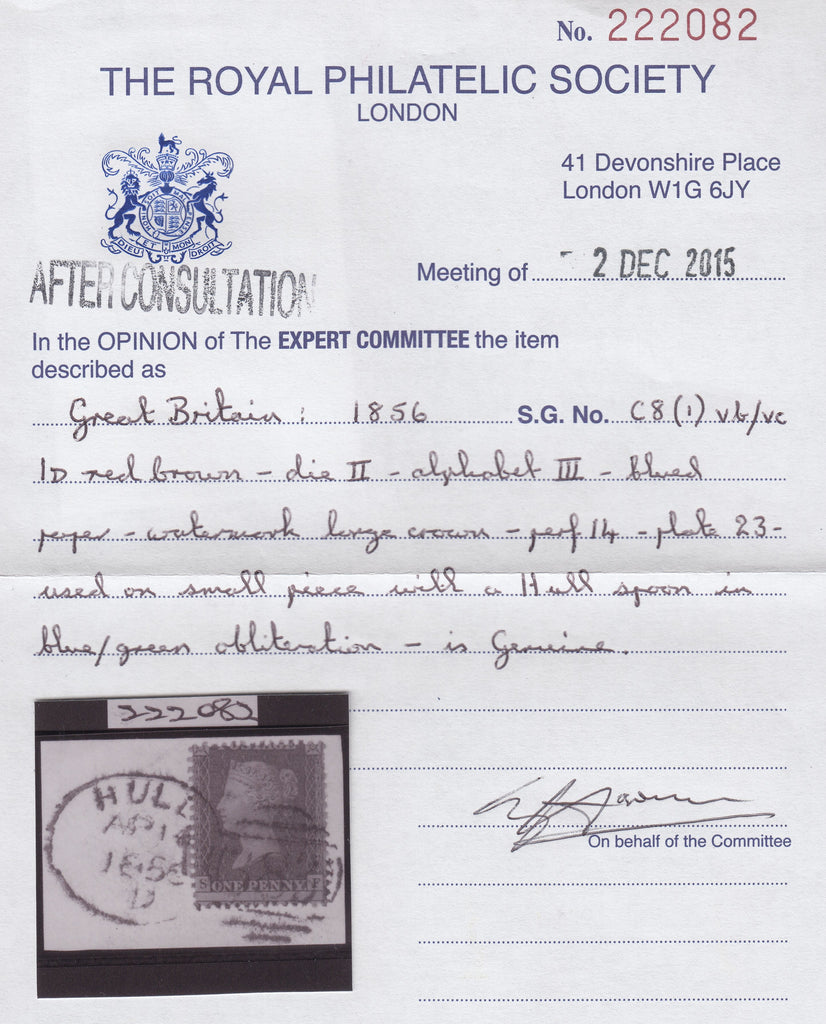 No. 222082
THE ROYAL PHILATELIC SOCIETY
LONDON
41 Devonshire Place
London W1G 6JY
DIEU ET MON DROIT
AFTER CONSULTATION
Meeting of - 2 DEC 2015
In the OPINION of The EXPERT COMMITTEE the item
described as
Great Britain: 1856 S.G. No. C8(1) vb/vc
1D red brown - die II - alphabet III - blued
paper - watermark large crown - perf 14 - plate 23 -
used on small piece with a Hull spoon in
blue/green obliteration - is Genuine.
222082
HULL
AP 1
1856
D
S ONE PENNY F
On behalf of the Committee